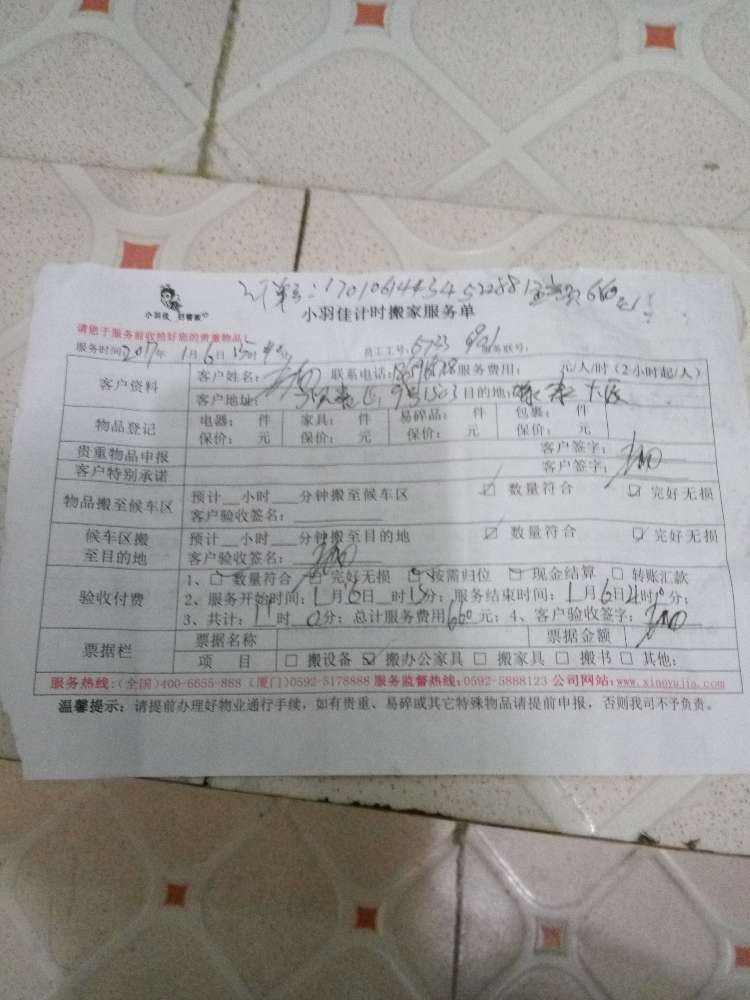 小羽佳 好管家
小羽佳计时搬家服务单
请您于服务前收拾好您的贵重物品
服务时间2017年1月6日 员工工号: 服务联号:
客户资料 客户姓名: 联系电话: 服务费用: 元/人/时(2小时起/人)
客户地址: 目的地:
物品登记 电器: 件 家具: 件 易碎品: 件 包裹: 件
保价: 元 保价: 元 保价: 元 保价: 元
贵重物品申报 客户签字:
客户特别承诺 客户签字:
物品搬至候车区 预计__小时___分钟搬至候车区 ☑ 数量符合 ☑ 完好无损
客户验收签名:
候车区搬至目的地 预计__小时___分钟搬至目的地 ☑ 数量符合 ☑ 完好无损
客户验收签名:
验收付费 1、☑ 数量符合 ☑ 完好无损 ☑ 按需归位 ☑ 现金结算 □ 转账汇款
2、服务开始时间:1月6日 时 分; 服务结束时间:1月6日 时 分;
3、共计: 时 分; 总计服务费用660元; 4、客户验收签字:
票据栏 票据名称 票据金额
项 目 □ 搬设备 ☑ 搬办公家具 □ 搬家具 □ 搬书 □ 其他:
服务热线:(全国)400-6655-888 (厦门)0592-5178888 服务监督热线:0592-5888123 公司网站:www.xiaoyujia.com
温馨提示: 请提前办理好物业通行手续, 如有贵重、易碎或其它特殊物品请提前申报, 否则我司不予负责。